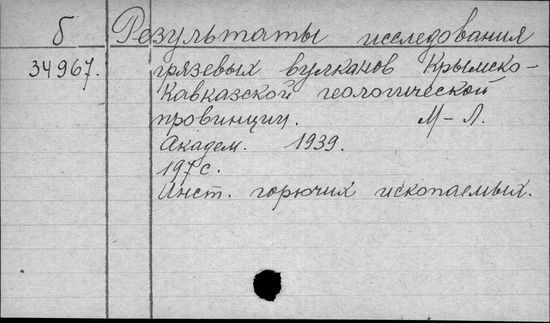 Б Результаты исследования
34967. грязевых вулканов Крымско-
Кавказской геологической
провинции. М-Л.
Академ. 1939.
197 с.
Инст. горючих ископаемых.